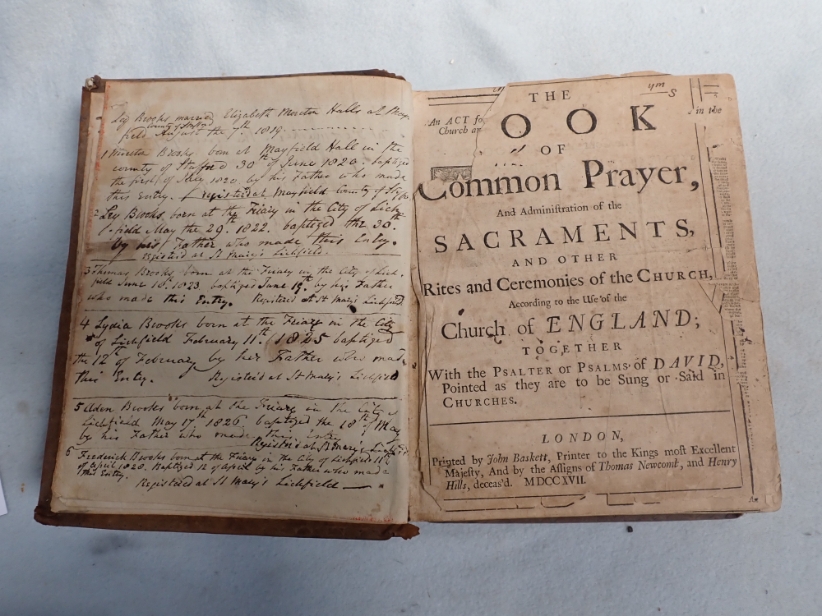 Ley Brooks married Elizabeth Minton Halls at
field August the 7th 1819.
County of Stafford
1 Minton Brooks born at Mayfield Hall in the
county of Stafford 30th of June 1820. baptized
the first of July 1820 by his Father who made
this Entry. registered at Mayfield County of
2 Ley Brooks, born at the Friary in the City of Lich-
field May the 29th. 1822. baptized the 30th
by his Father who made this Entry.
registered at St Mary's Lichfield.
3 Thomas Brooks, born at the Friary in the City of Lich-
field June 18th. 1823. baptized June 19th. by his Father
who made this Entry. Registered at St Mary's Lichfield
4 Lydia Brooks born at the Friary in the City
of Lichfield February 11th. 1825 baptized
the 12th of February by her Father who made
this Entry. Registered at St Mary's Lichfield
5 Alden Brooks born at the Friary in the City of
Lichfield May 17th 1826 baptized the 18th of May
by his Father who made this Entry
Registered at St Mary's Lichfield
6 Frederick Brooks born at the Friary in the City of Lichfield 11th
of April 1828. Baptized 12 of April by his Father who made
this Entry.
Registered at St Mary's Lichfield
ym
s
An ACT for
in the
Church an
THE
OOK
OF
Common Prayer,
And Administration of the
SACRAMENTS,
AND OTHER
Rites and Ceremonies of the CHURCH,
According to the Use of the
Church of ENGLAND;
TOGETHER
With the PSALTER or PSALMS of DAVID,
Pointed as they are to be Sung or Said in
CHURCHES.
LONDON,
Printed by John Baskett, Printer to the Kings most Excellent
Majesty, And by the Assigns of Thomas Newcomb, and Henry
Hills, deceas'd. MDCCXVII.